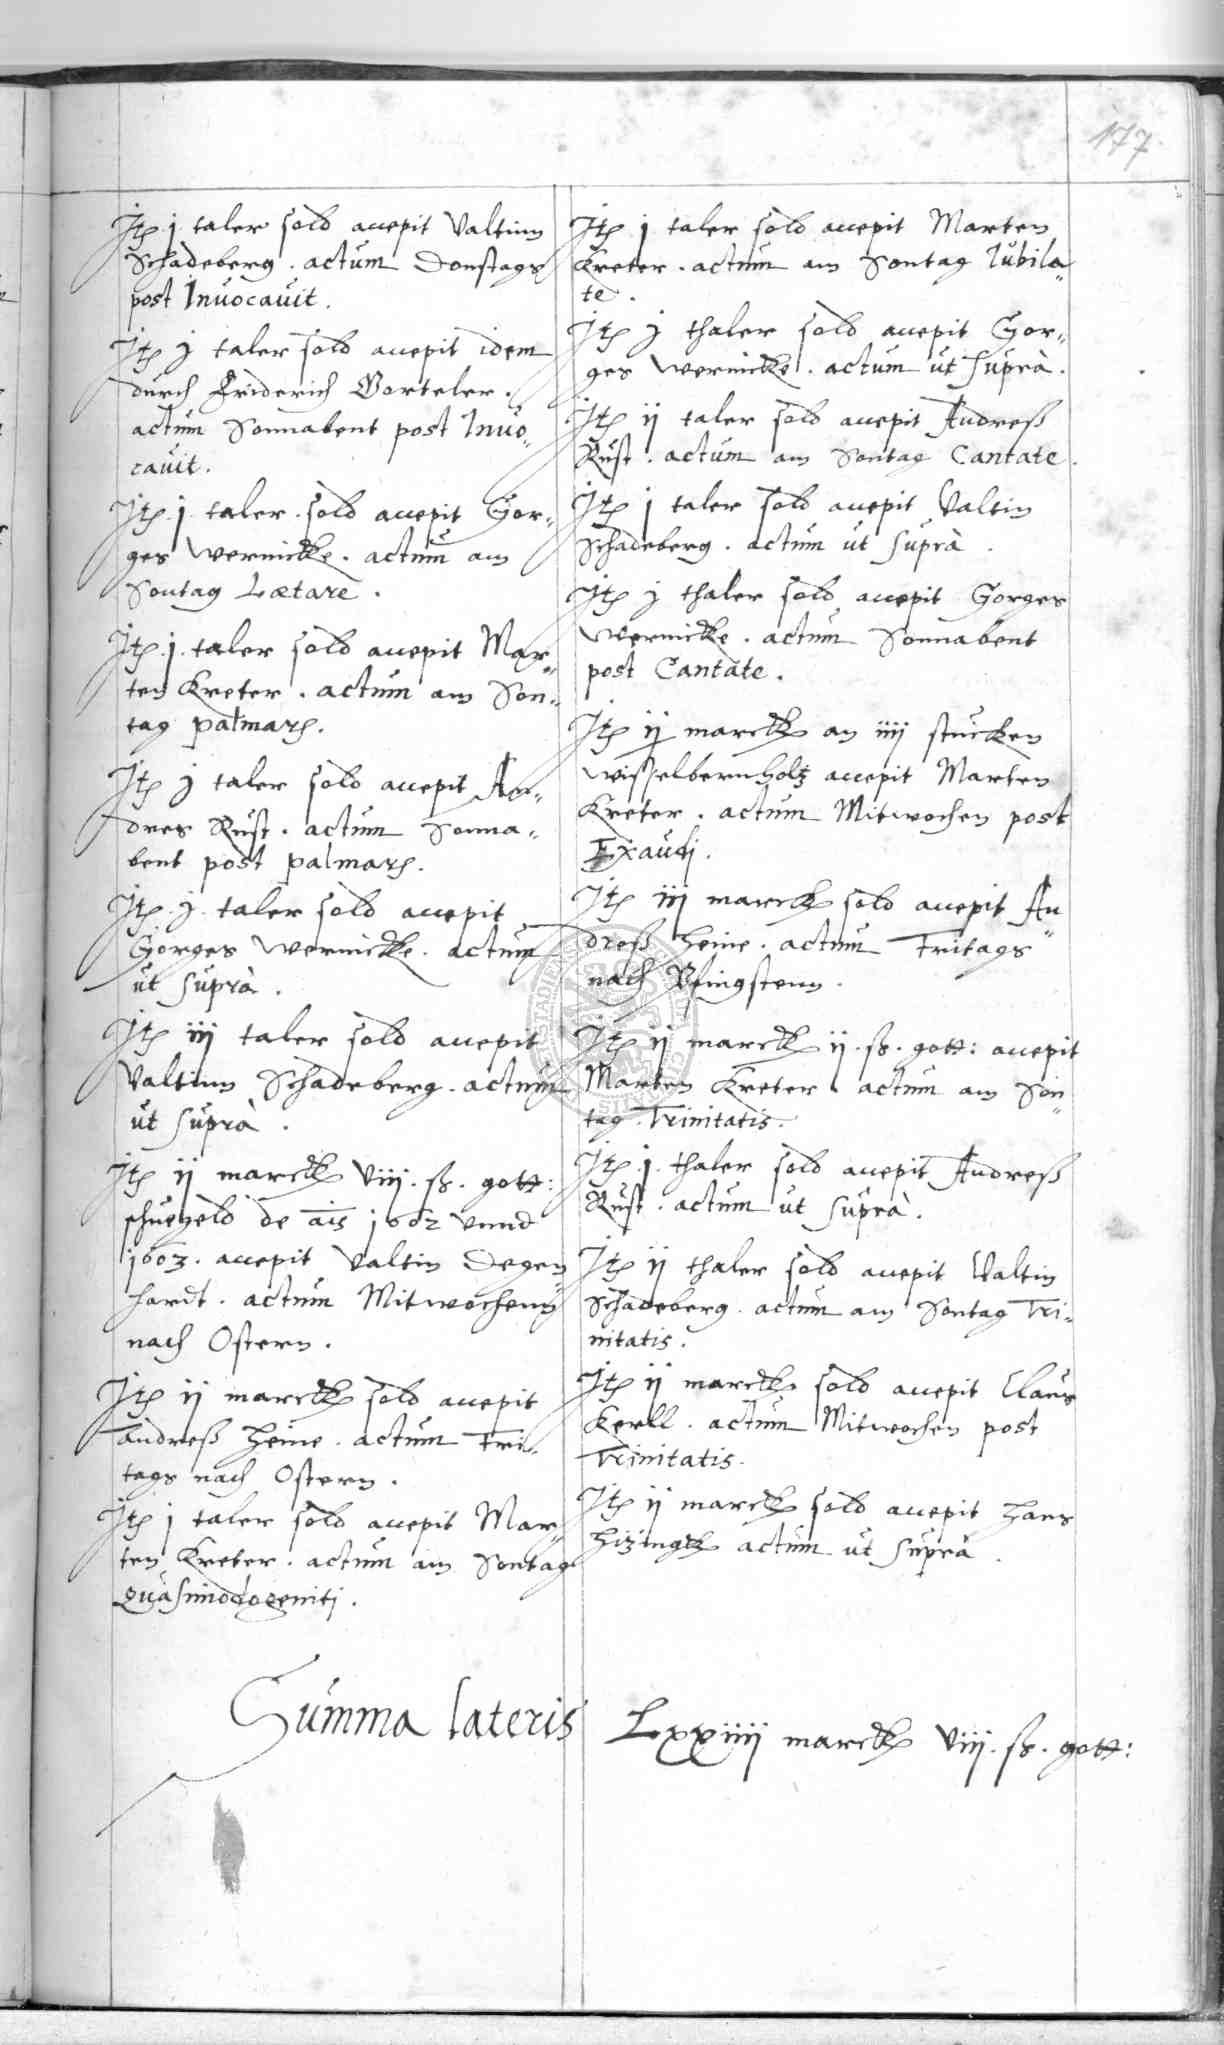 177
Itꝫ j taler sold accepit Valtinn
Schadeberg . actum Donstags
post Invocavit .
Itꝫ j taler sold accepit idem
durch Friderich Borteler .
actum Sonnabent post Invo„
cavit .
Itꝫ j taler sold accepit Gor„
ges Wernicke . actum am
Sontag Lætare .
Itꝫ j taler sold accepit Mar„
ten Kreter . actum am Son„
tag palmarꝫ .
Itꝫ j taler sold accepit An„
dres Rust . actum Sonna„
bent post palmarꝫ .
Itꝫ j taler sold accepit
Gorges Wernicke . actum
ut suprà .
Itꝫ iij taler sold accepit
Valtinn Schadeberg . actum
ut suprà .
Itꝫ ij marck viij . ß . gott :
de ais 1602 vnnd
1603 . accepit Valtin Degen„
hardt . actum Mitwochenn
nach Ostern .
Itꝫ ij marck sold accepit
Andreß Heine . actum Fri„
tags nach Ostern .
Itꝫ j taler sold accepit Mar„
ten Kreter . actum am Sontag
Quasimodogeniti .
Itꝫ j taler sold accepit Marten
Kreter . actum am Sontag Iubila„
te .
Itꝫ j thaler sold accepit Gor„
ges Wernicke . actum ut suprà .
Itꝫ ij taler sold accepit Andreß
Rust . actum am Sontag Cantate .
Itꝫ j taler sold accepit Valtin
Schadeberg . actum ut suprà .
Itꝫ j thaler sold accepit Gorges
Wernicke . actum Sonnabent
post Cantate .
Itꝫ ij marck an iiij stucken
Wisselbernholtz accepit Marten
Kreter . actum Mitwochen post
Exaudi .
Itꝫ iij marck sold accepit An„
dreß Heine . actum Fritags
nach Pfingstenn .
Itꝫ ij marck ij . ß . gott : accepit
Marten Kreter . actum am Son„
tag Trinitatis .
Itꝫ j thaler sold accepit Andreß
Rust . actum ut suprà .
Itꝫ ij thaler sold accepit Valtin
Schadeberg . actum am Sontag Tri„
nitatis .
Itꝫ ij marck sold accepit Claus
Kerll . actum Mitwochen post
Trinitatis .
Itꝫ ij marck sold accepit Hans
actum ut suprà .
Summa lateris Lxxiiij marck viij . ß . gott :